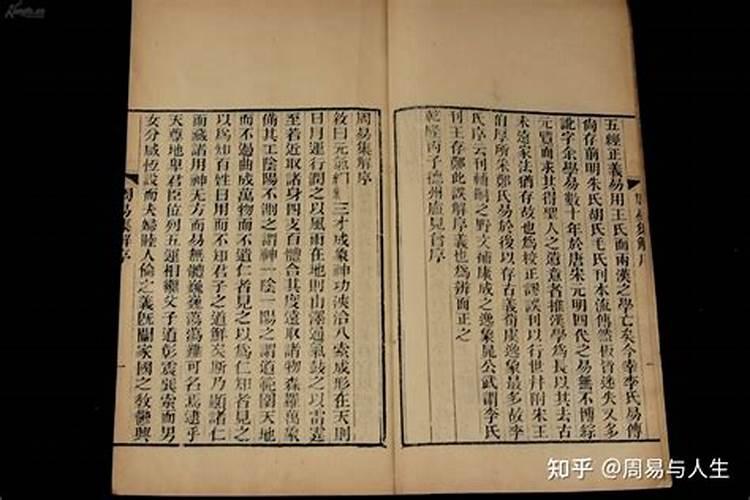 五經正義易用王氏而兩漢之學亡矣今幸李氏易傳
尚存前明朱氏胡氏毛氏刊本流傳然板皆迷失又多
訛字余學易數十年於唐宋元明四代之易無不博綜
元覽而求其得聖人之遺意者推漢學為長以其去古
未遠家法猶存故也為校正謬誤刊以行世并附朱王
伯厚所采鄭氏易於後以存古義荀虞逸象最多故李
氏序云刊輔嗣之野文補康成之逸象晁公武謂李氏
刊王存鄭此誤解序義也為辨而正之
乾隆丙子德州盧見曾序
周易集解序
敘曰元氣絪縕三才成象神功浹洽八索成形在天則
日月運行潤之以風雨在地則山澤通氣鼓之以雷霆
至若近取諸身四支百體合其度遠取諸物森羅萬象
備其工陰陽不測之謂神一陰一陽之謂道範圍天地
而不過曲成萬物而不遺仁者見之以為仁知者見之
以為知百姓日用而不知君子之道鮮矣斯乃顯諸仁
而藏諸用神无方而易無體巍巍蕩蕩難可名焉逮乎
天尊地卑君臣位列五運相繼父子道彰震巽索而男
女分咸恆設而夫婦睦人倫之義既闡家國之教鬱興
周易集解序
知乎 @周易与人生